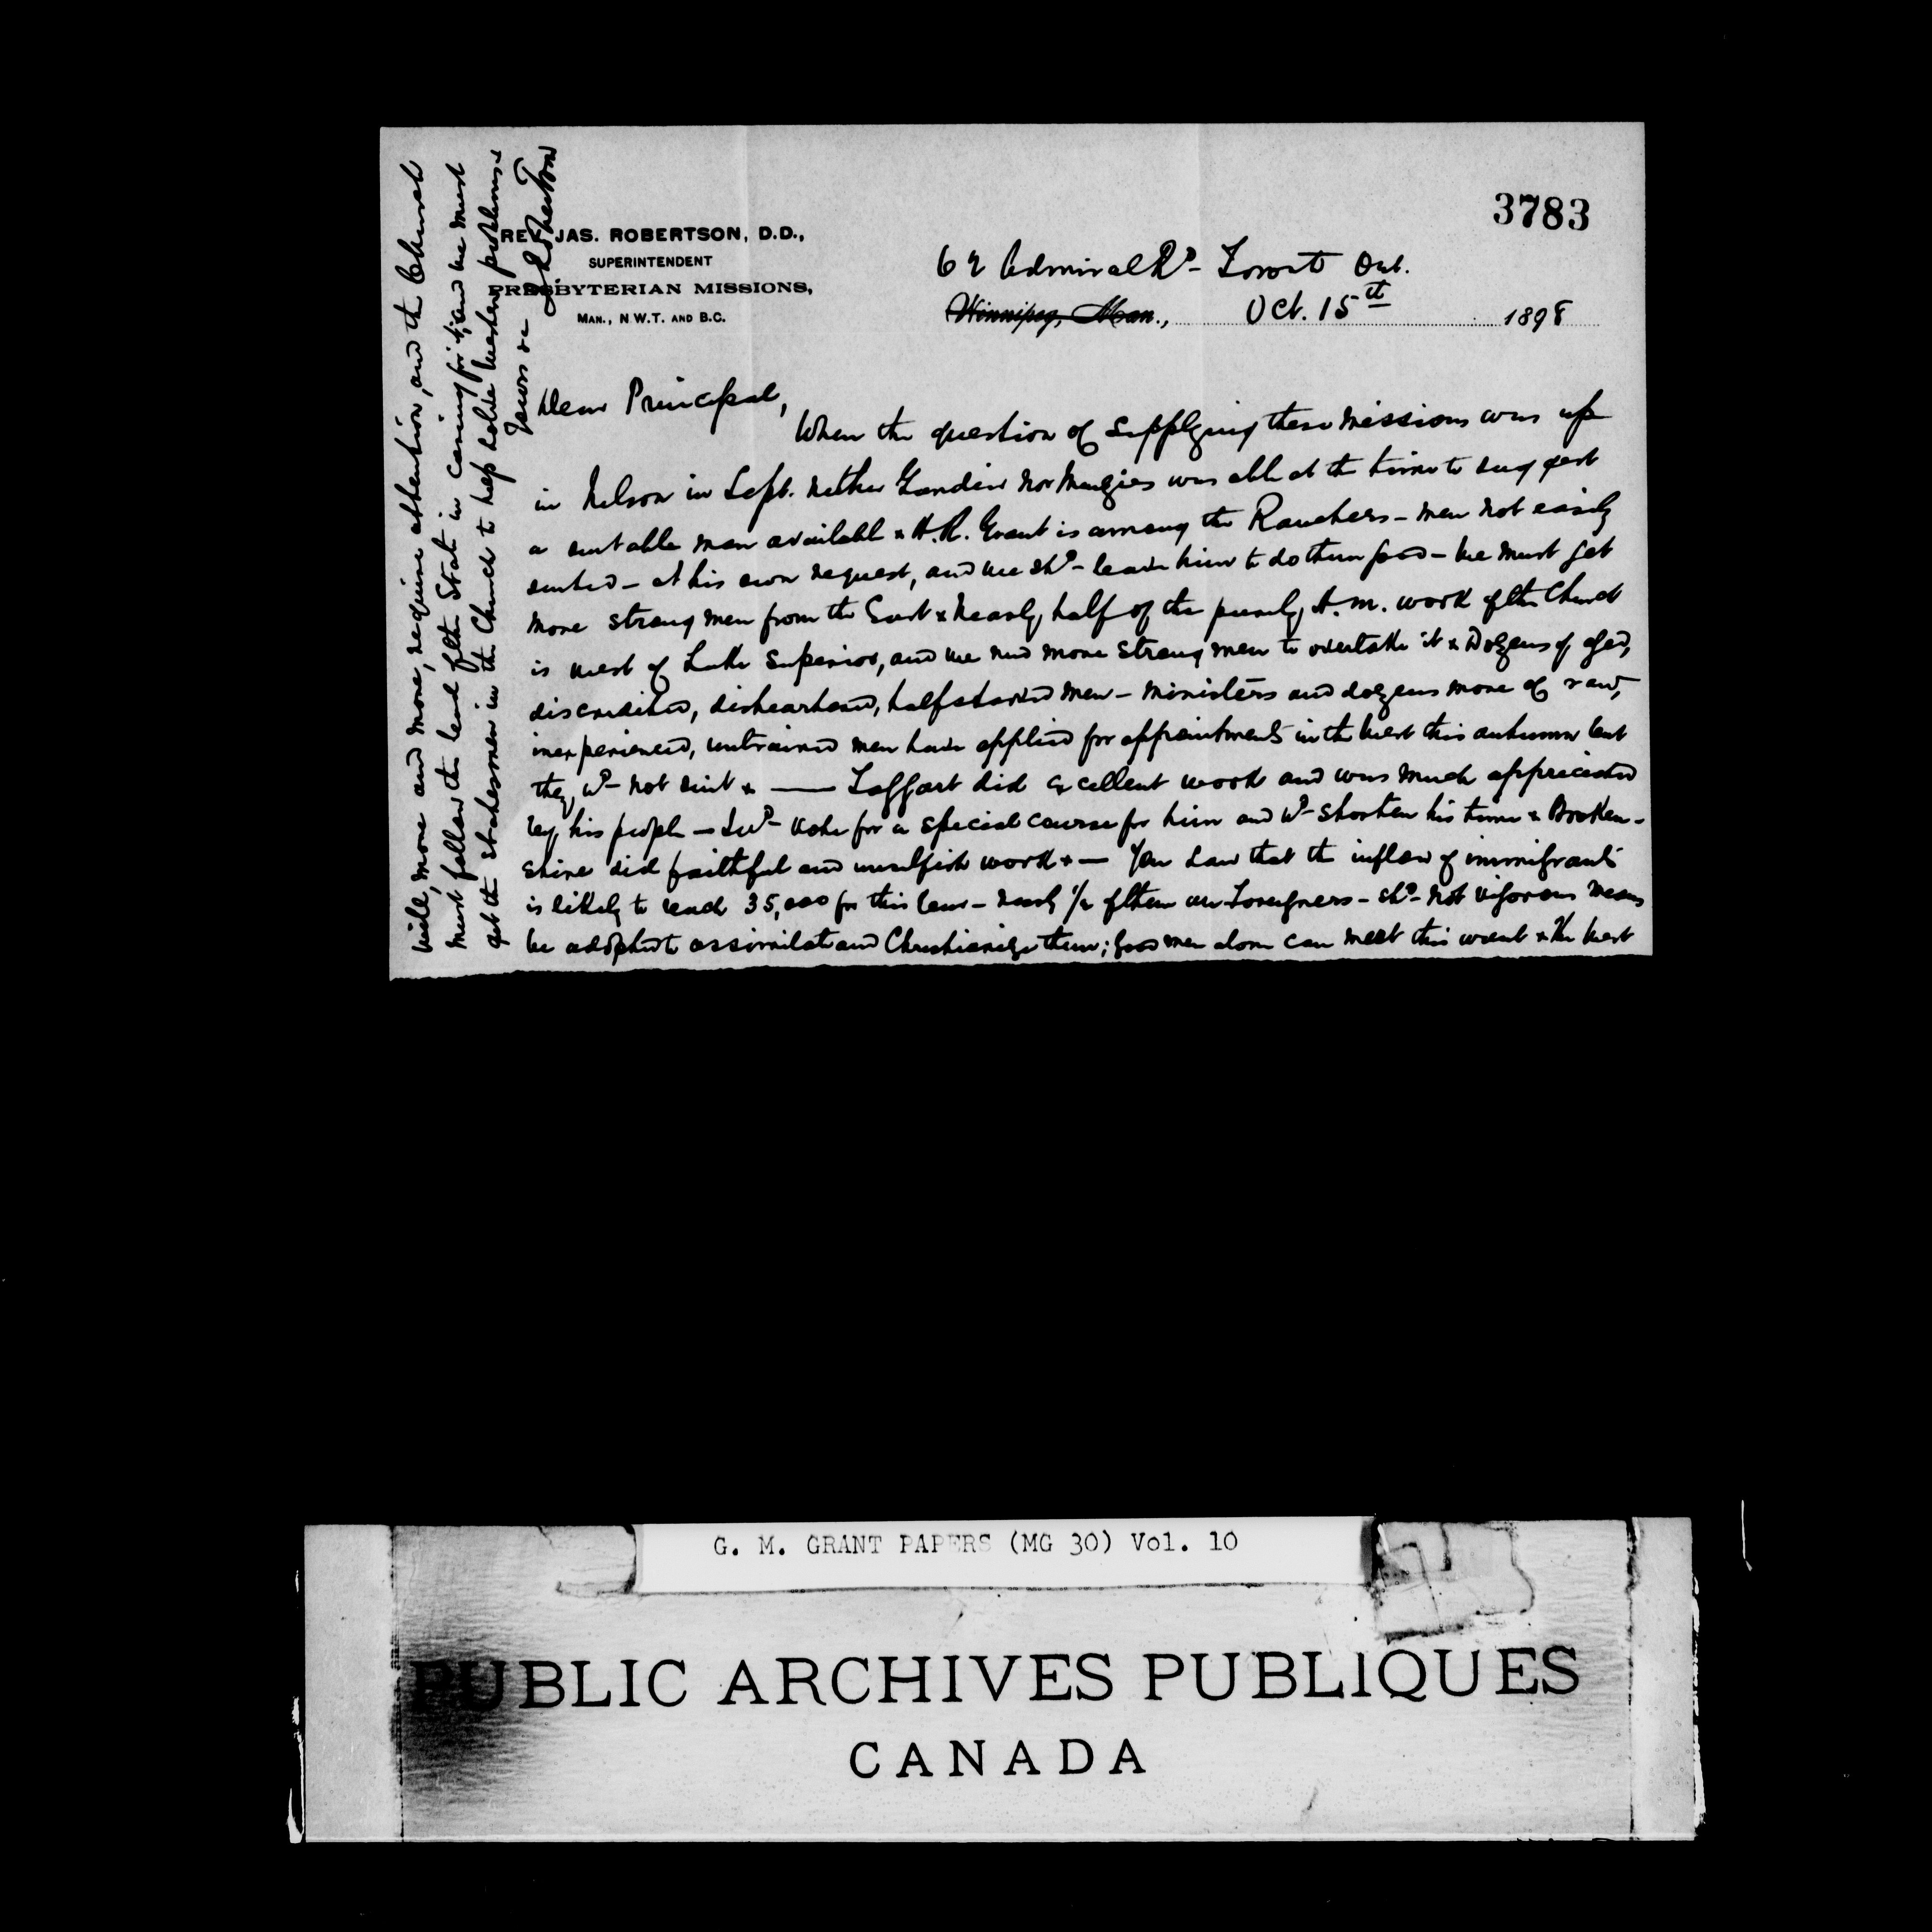 3783
REV. JAS. ROBERTSON, D.D.,
SUPERINTENDENT
PRESBYTERIAN MISSIONS,
MAN., N.W.T. AND B.C.
62 Admiral Rd- Toronto Ont.
Winnipeg, Man., Oct. 15th 1898
Dear Principal,
When the question of supplying these missions was up
in Nelson in Sept. neither nor was able at the time to suggest
a suitable man available & H.R. Grant is among the Ranchers - men not easily
suited - at his own request, and we shd- leave him to do them good - We must get
more strong men from the East & Nearly half of the purely H.M. work of the Church
is west of Lake Superior, and we need more strong men to overtake it & Dozens of aged,
discredited, disheartened, half starved men - ministers and dozens more of raw,
inexperienced, untrained men have applied for appointments in the West this autumn but
they wd- not suit & — Taggart did excellent work and was much appreciated
by his people - I wd- vote for a special course for him and wd- shorten his time & Brooken-
shire did faithful and unselfish work & — You saw that the inflow of immigrants
is likely to reach 35,000 for this year - nearly 1/2 of them are Foreigners - shd- not vigorous means
be adopted to assimilate and Christianize them; good men alone can meet this want & The West
will, more and more, require attention, and the Church
must follow the lead of the State in caring for it, and we must
get the statesmen in the Church to help solve Western problems &
Yours &c
J. Robertson
G. M. GRANT PAPERS (MG 30) Vol. 10
PUBLIC ARCHIVES PUBLIQUES
CANADA